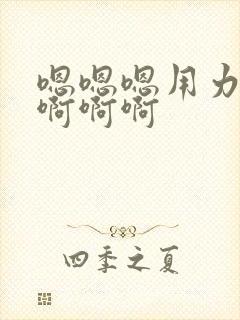 嗯嗯嗯用力
啊啊啊
四季之夏